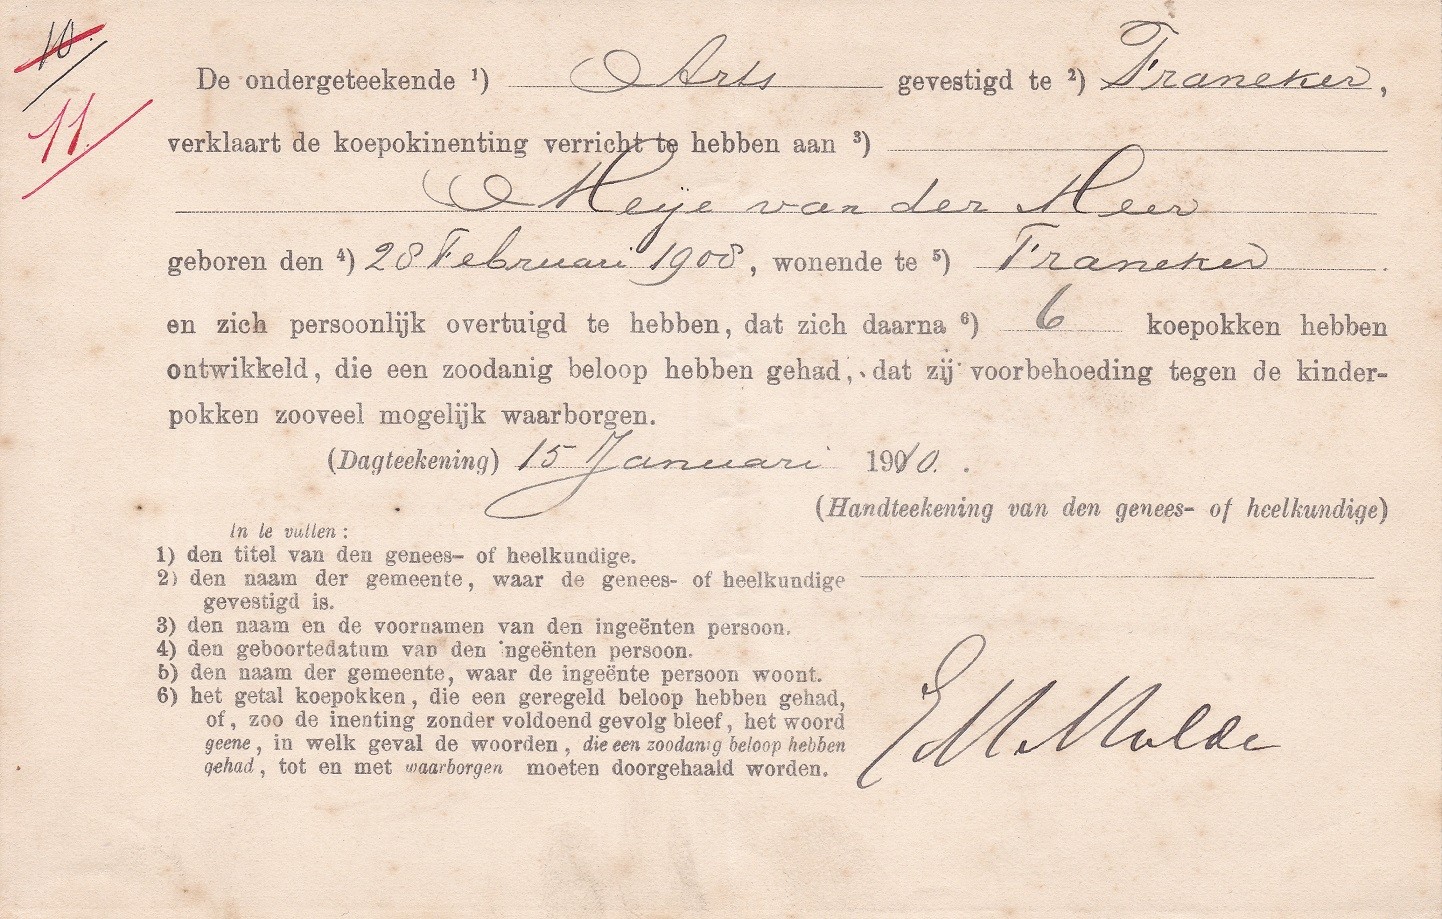 10.
11.
De ondergeteekende ¹) Arts gevestigd te ²) Franeker,
verklaart de koepokinenting verricht te hebben aan ³)
Meije van der Meer
geboren den ⁴) 28 Februari 1908, wonende te ⁵) Franeker.
en zich persoonlijk overtuigd te hebben, dat zich daarna ⁶) 6 koepokken hebben
ontwikkeld, die een zoodanig beloop hebben gehad, dat zij voorbehoeding tegen de kinder-
pokken zooveel mogelijk waarborgen.
(Dagteekening) 15 Januari 1910.
(Handteekening van den genees- of heelkundige)
In te vullen:
1) den titel van den genees- of heelkundige.
2) den naam der gemeente, waar de genees- of heelkundige
gevestigd is.
3) den naam en de voornamen van den ingeënten persoon.
4) den geboortedatum van den ingeënten persoon.
5) den naam der gemeente, waar de ingeënte persoon woont.
6) het getal koepokken, die een geregeld beloop hebben gehad,
of, zoo de inenting zonder voldoend gevolg bleef, het woord
geene, in welk geval de woorden, die een zoodanig beloop hebben
gehad, tot en met waarborgen moeten doorgehaald worden.